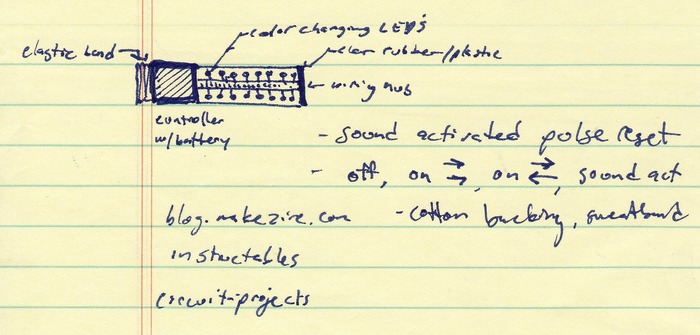 color changing LEDs
elastic band
clear rubber/plastic
wiring hub
controller
w/battery
- sound activated pulse reset
- off, on →→, on →←, sound act
blog.makezine.com
- cotton backing, sweatband
instructables
circuit-projects